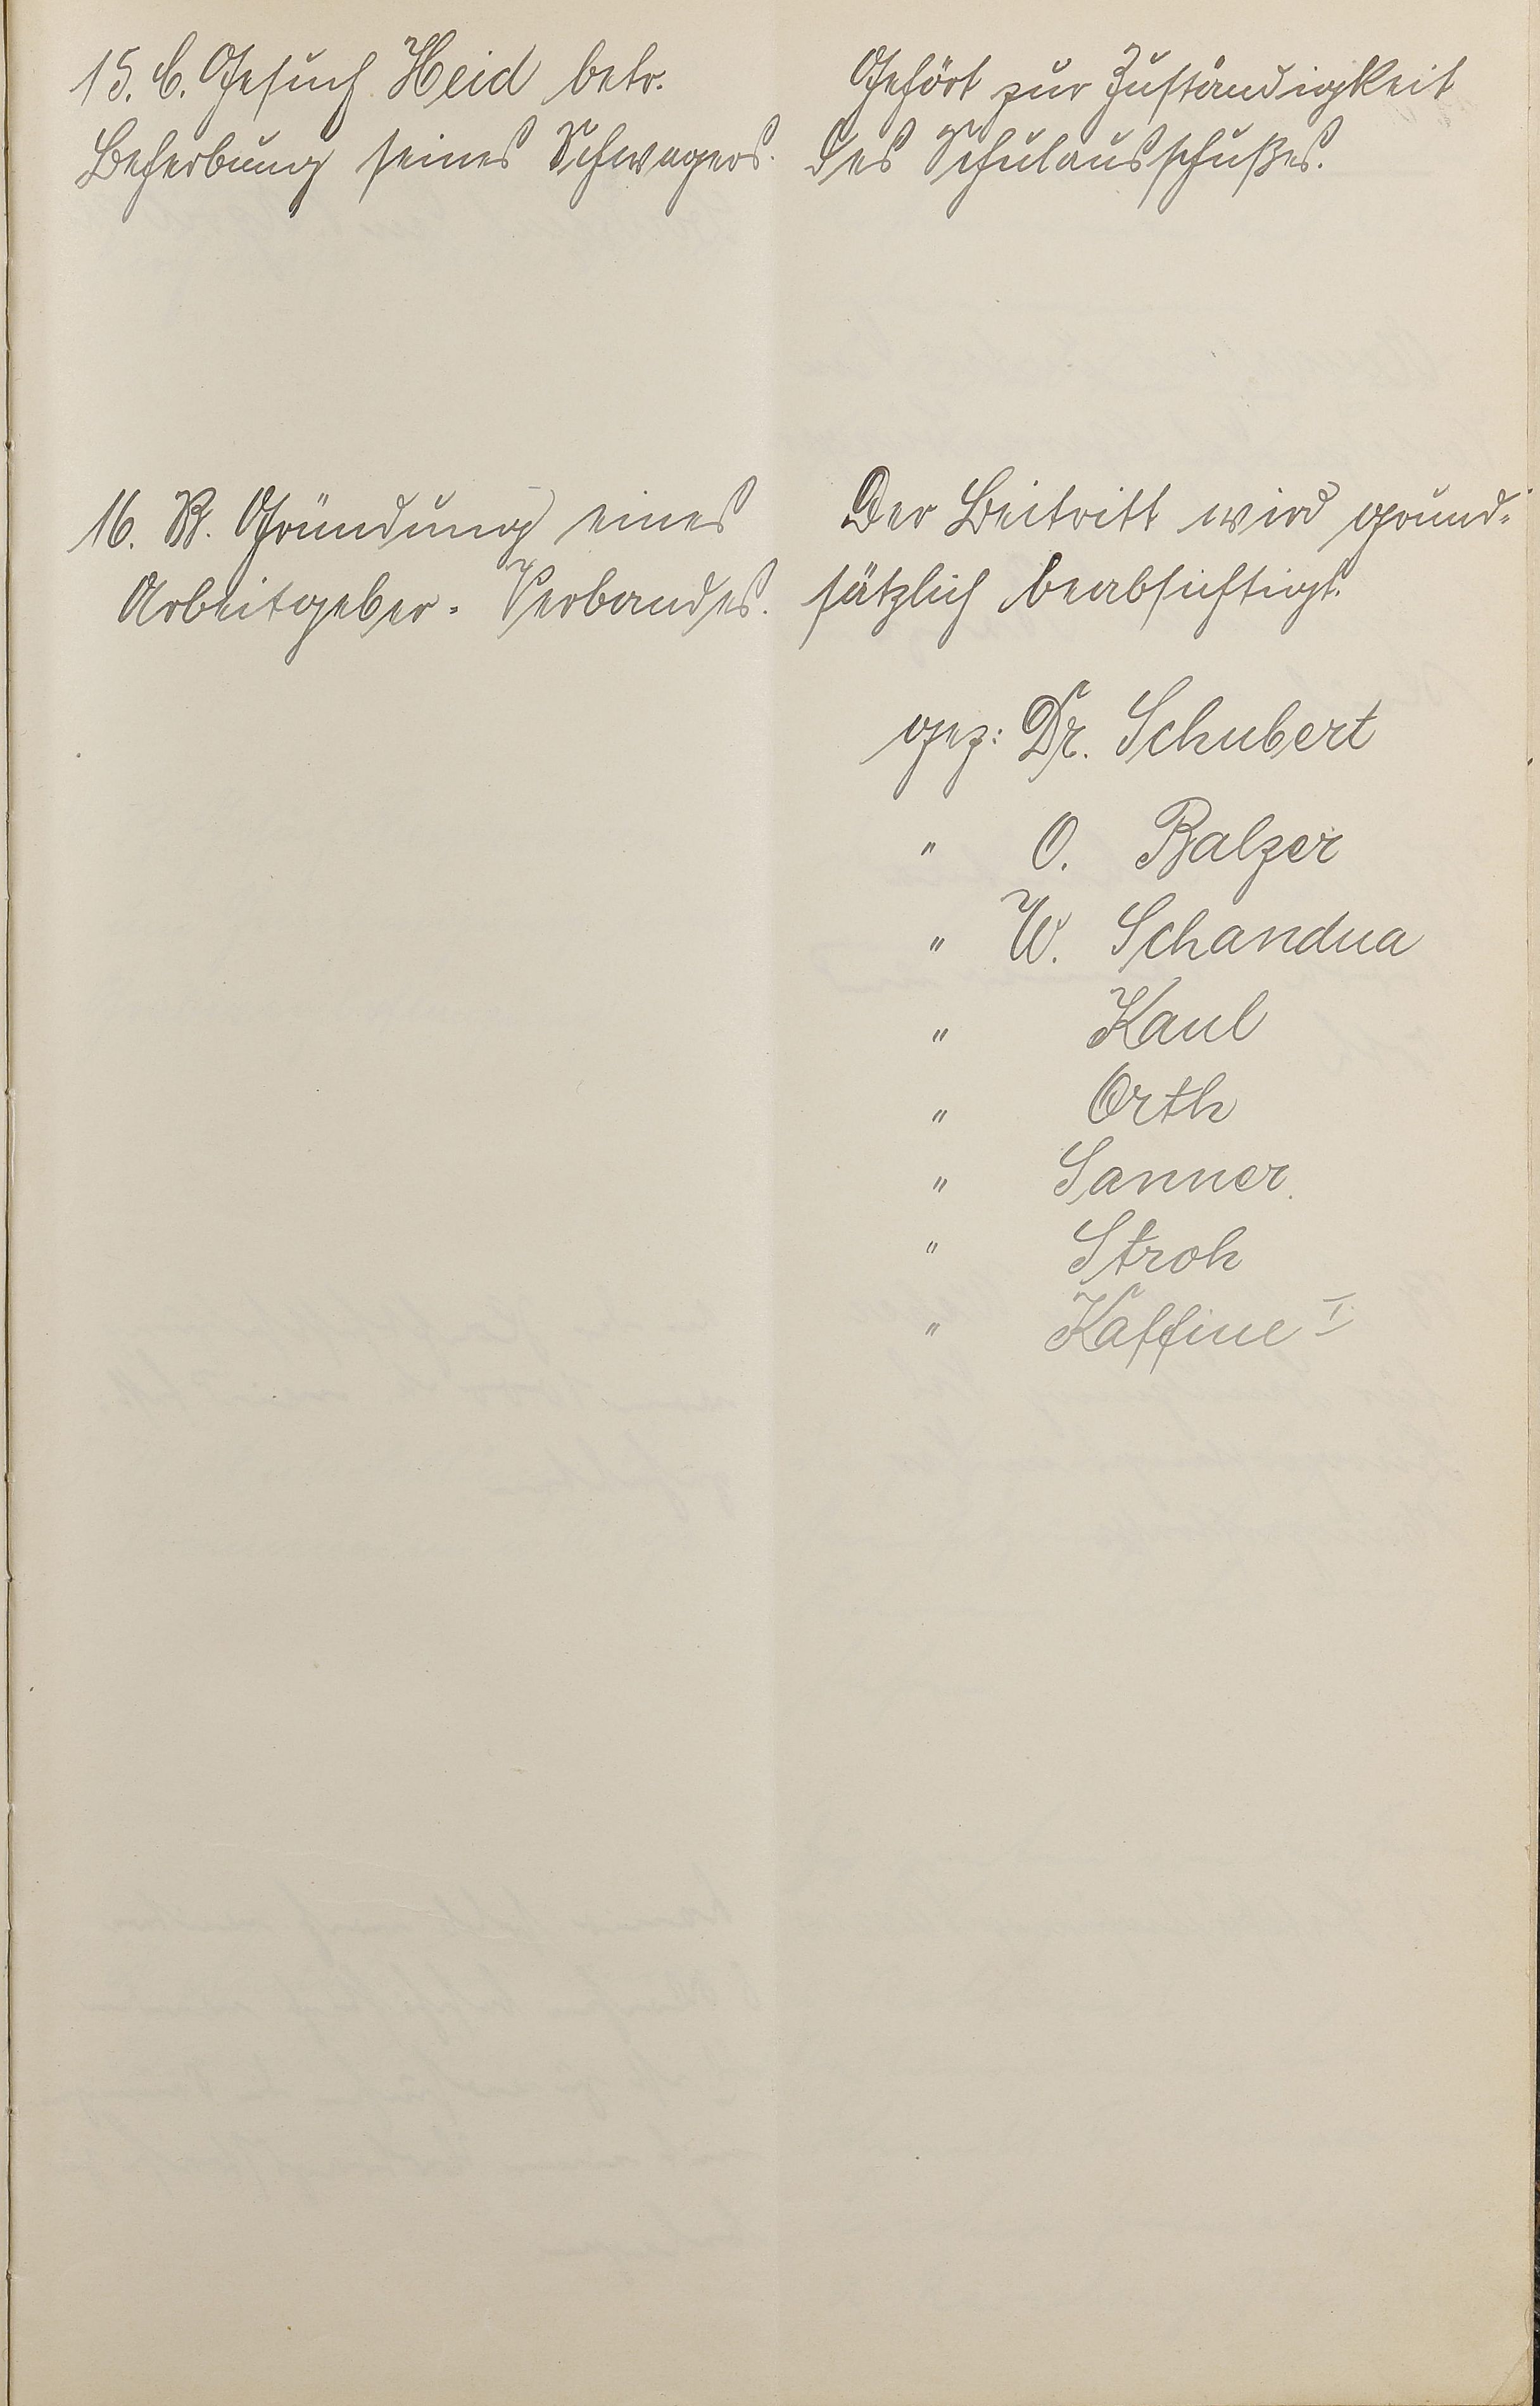 15. C. Gesuch Heid betr.
Beherbung seines Schwagers.
Gehört zur Zuständigkeit
des Schulausschußes.
16. B. Gründung eines
Arbeitgeber-Verbandes.
Der Beitritt wird grund-
sätzlich beabsichtigt.
gez: Dr. Schubert
" O. Balzer
" W. Schandua
" Kaul
" Orth
" Sanner
" Stroh
" Kaffine I